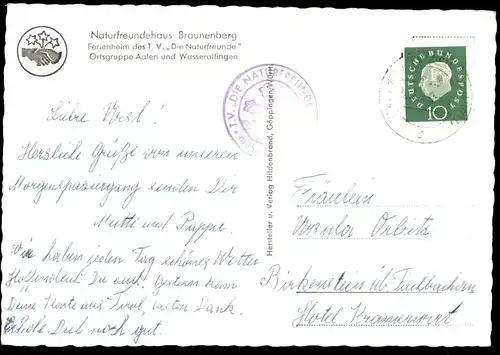 Naturfreundehaus Braunenberg
Ferienheim des T. V. „Die Naturfreunde"
Ortsgruppe Aalen und Wasseralfingen
T.V. „DIE NATURFREUNDE
Hersteller u. Verlag Hildenbrand, Göppingen/Wttbg.
DEUTSCHE BUNDESPOST
10
Liebe Ursl!
Herzliche Grüße von unserem
Morgenspaziergang senden Dir
Mutti und Puppe.
Wir haben jeden Tag schönes Wetter
Hoffentlich Du auch. Gestern kam
Deine Karte aus Tirol, vielen Dank.
Erhole Dich noch gut.
Fräulein
Ursula Orbitz
Birkenstein über Fischbachau
Hotel Kramerwirt